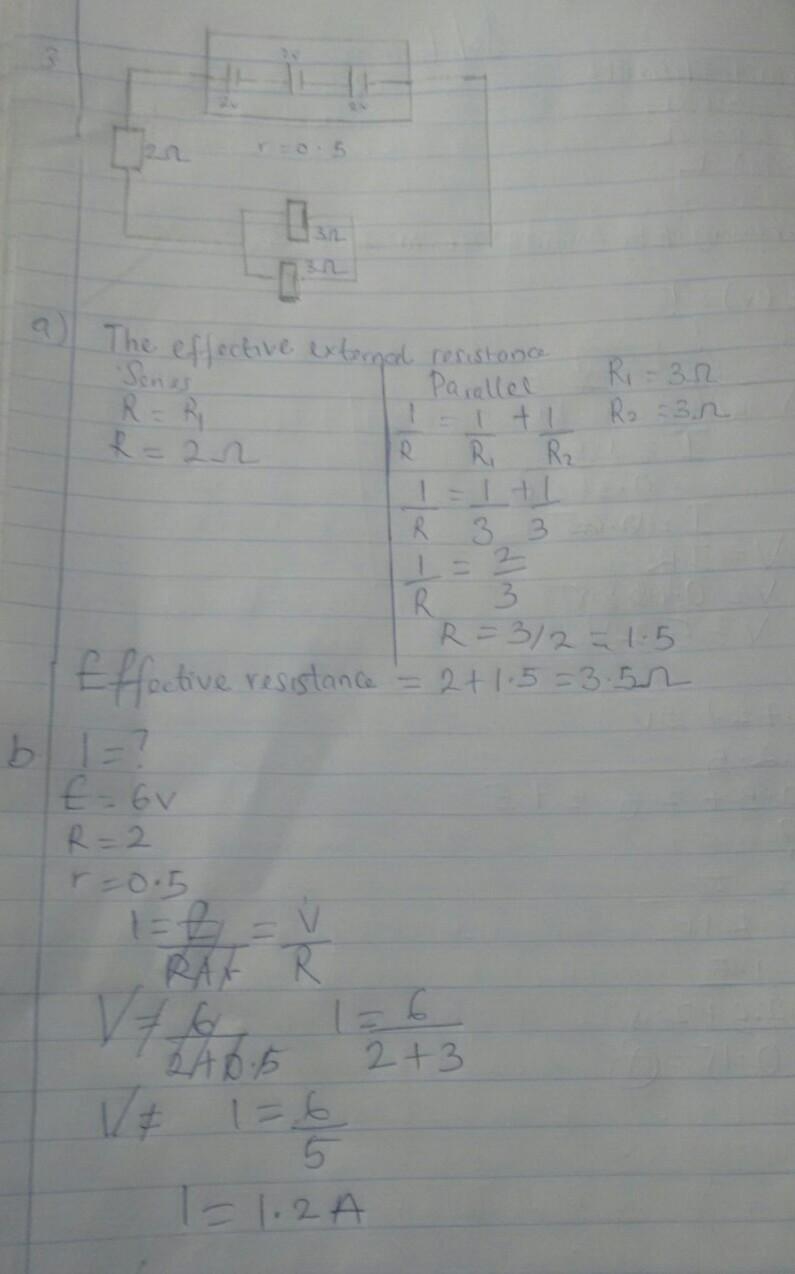 3
2v
2v
2v
2Ω
r = 0.5
3Ω
3Ω
a) The effective external resistance
Series
Parallel
R₁ = 3Ω
R = R₁
1/R = 1/R₁ + 1/R₂
R₂ = 3Ω
R = 2Ω
1/R = 1/3 + 1/3
1/R = 2/3
R = 3/2 = 1.5
Effective resistance = 2 + 1.5 = 3.5Ω
b I = ?
E = 6v
R = 2
r = 0.5
I = E/R+r = V/R
V = 6/2+0.5 I = 6/2+3
V = I = 6/5
I = 1.2A